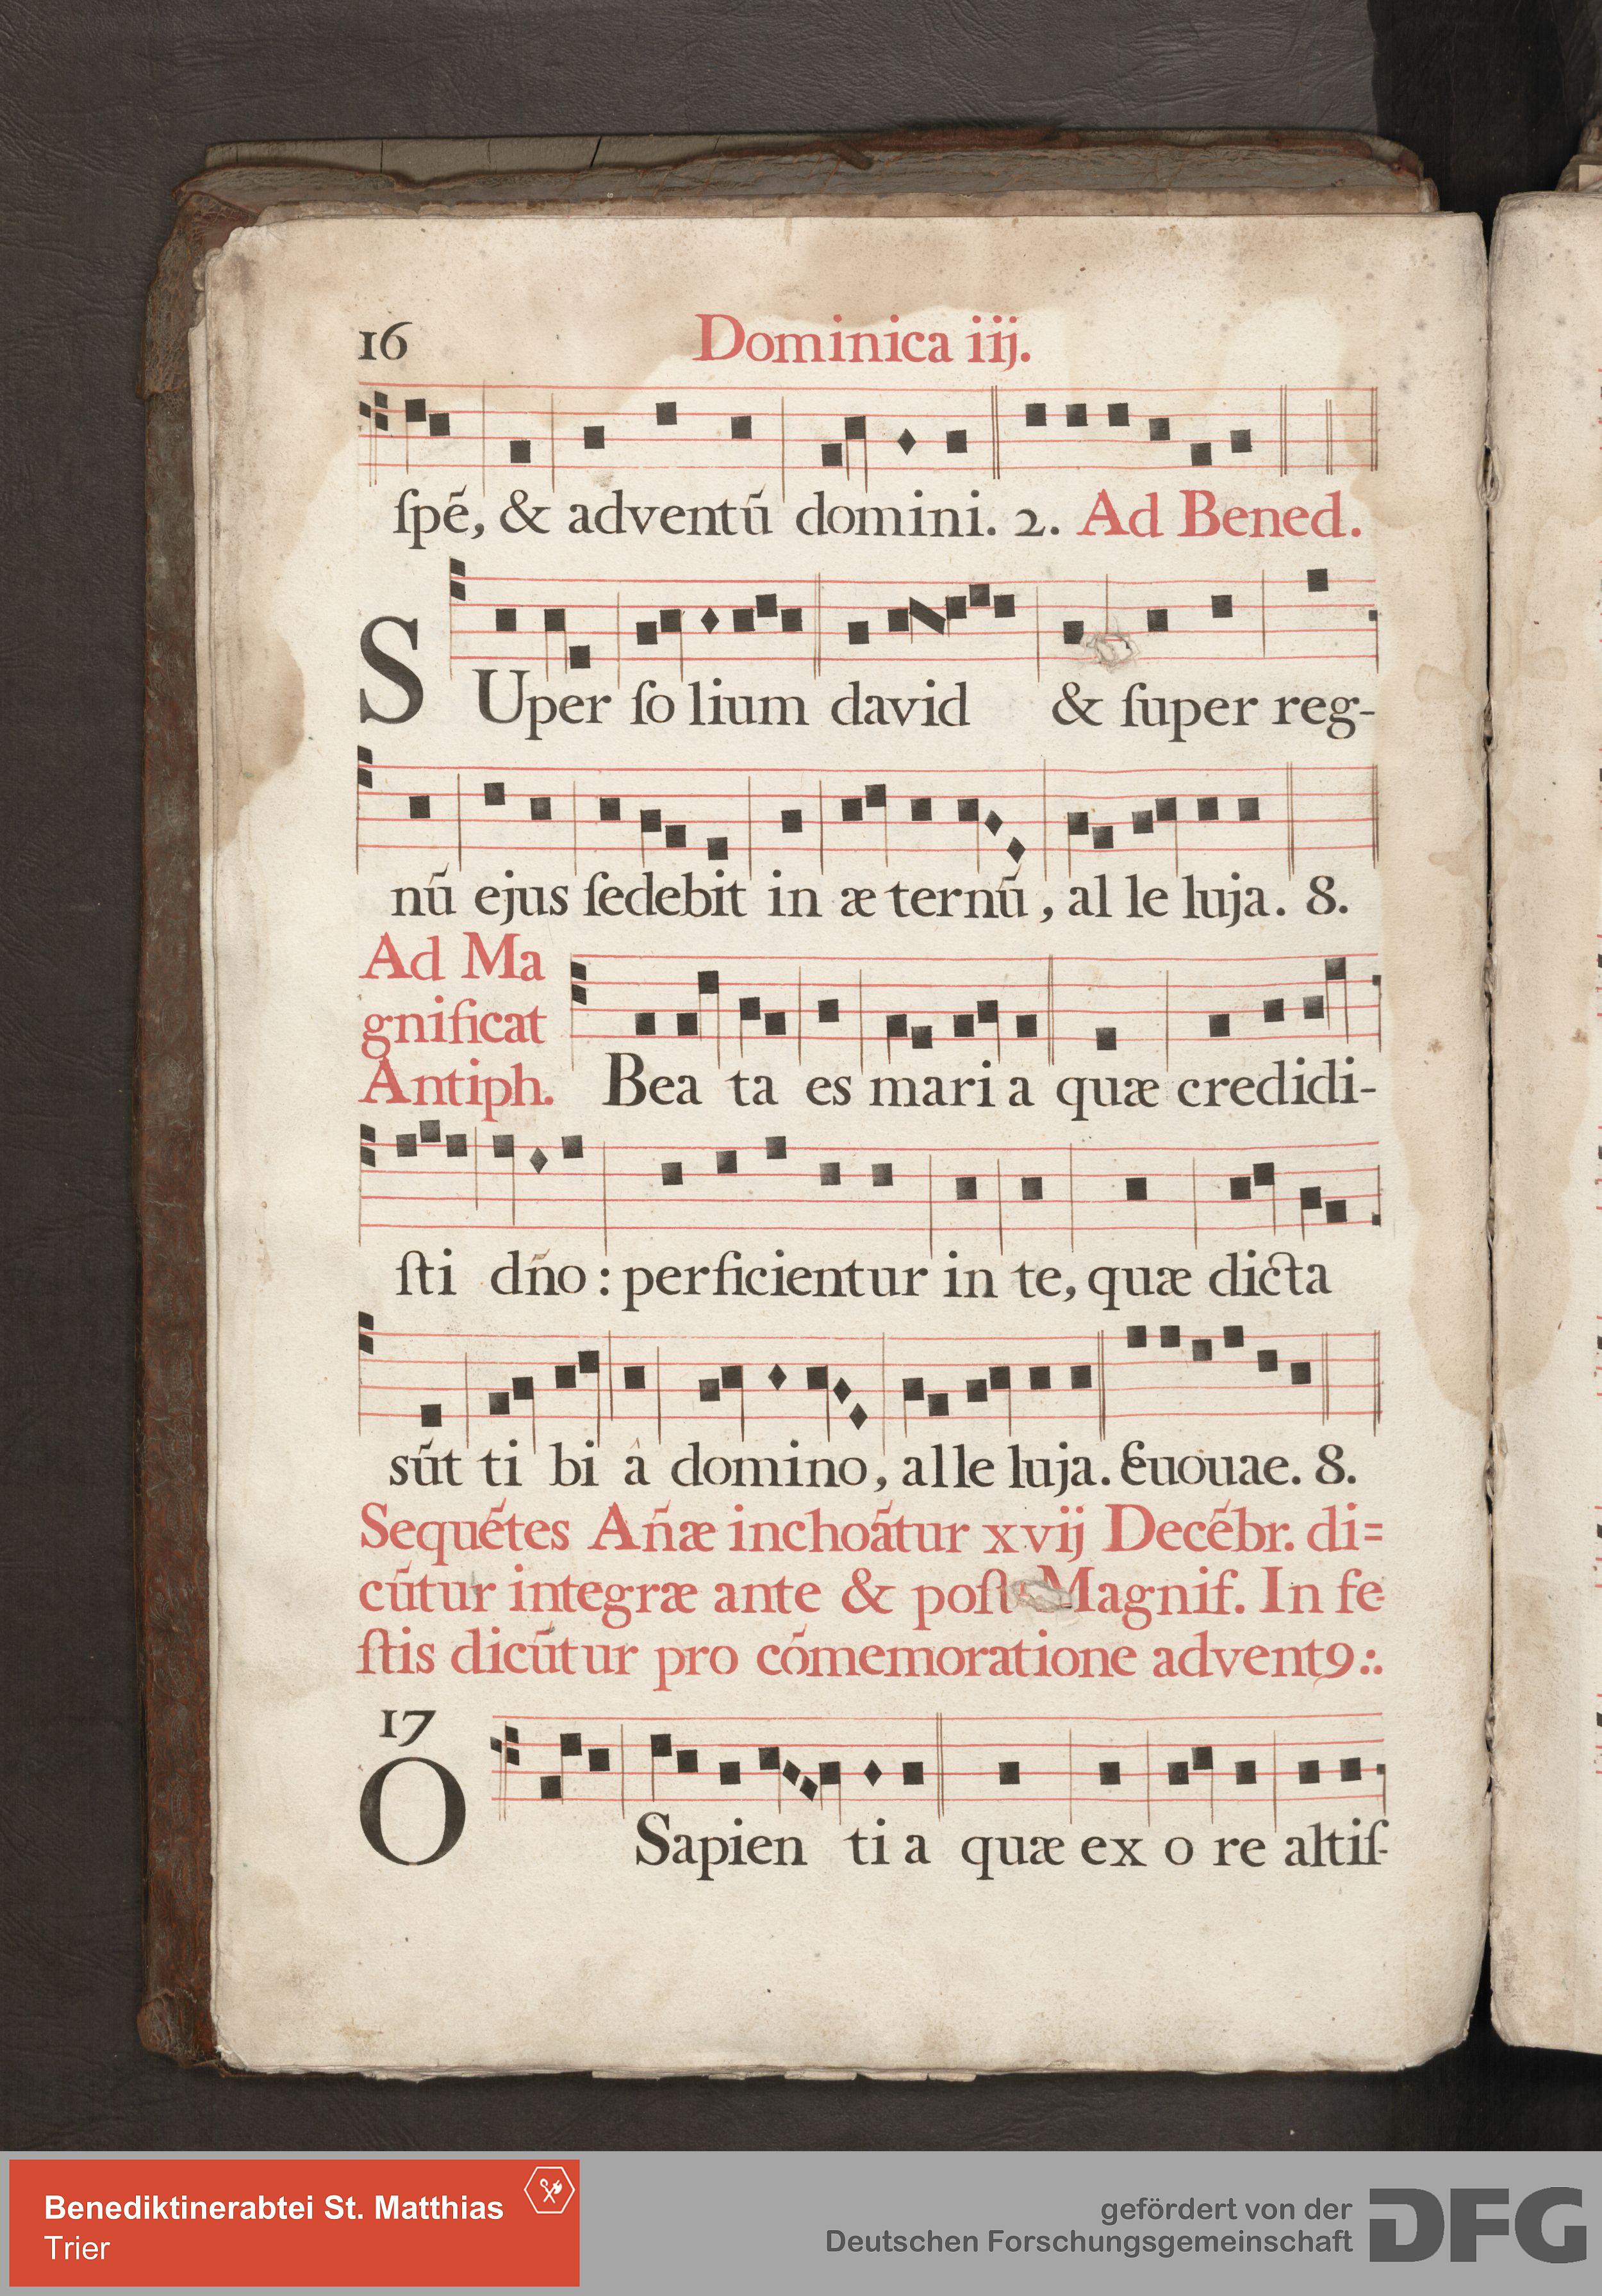 16 Dominica iij.
ſpē, & adventū domini. 2. Ad Bened.
SUper ſo lium david & ſuper reg-
nū ejus ſedebit in æ ternū, al le luja. 8.
Ad Ma
gnificat
Antiph. Bea ta es mari a quæ credidi-
ſti dño: perficientur in te, quæ dicta
sūt ti bi â domino, alle luja. Euouae. 8.
Sequētes Añæ inchoātur xvij Decēbr. di=
cūtur integræ ante & poſt Magnif. In fe-
ſtis dicūtur pro cōmemoratione advent9:.
17
O Sapien ti a quæ ex o re altiſ-
Benediktinerabtei St. Matthias
Trier
gefördert von der
Deutschen Forschungsgemeinschaft
DFG